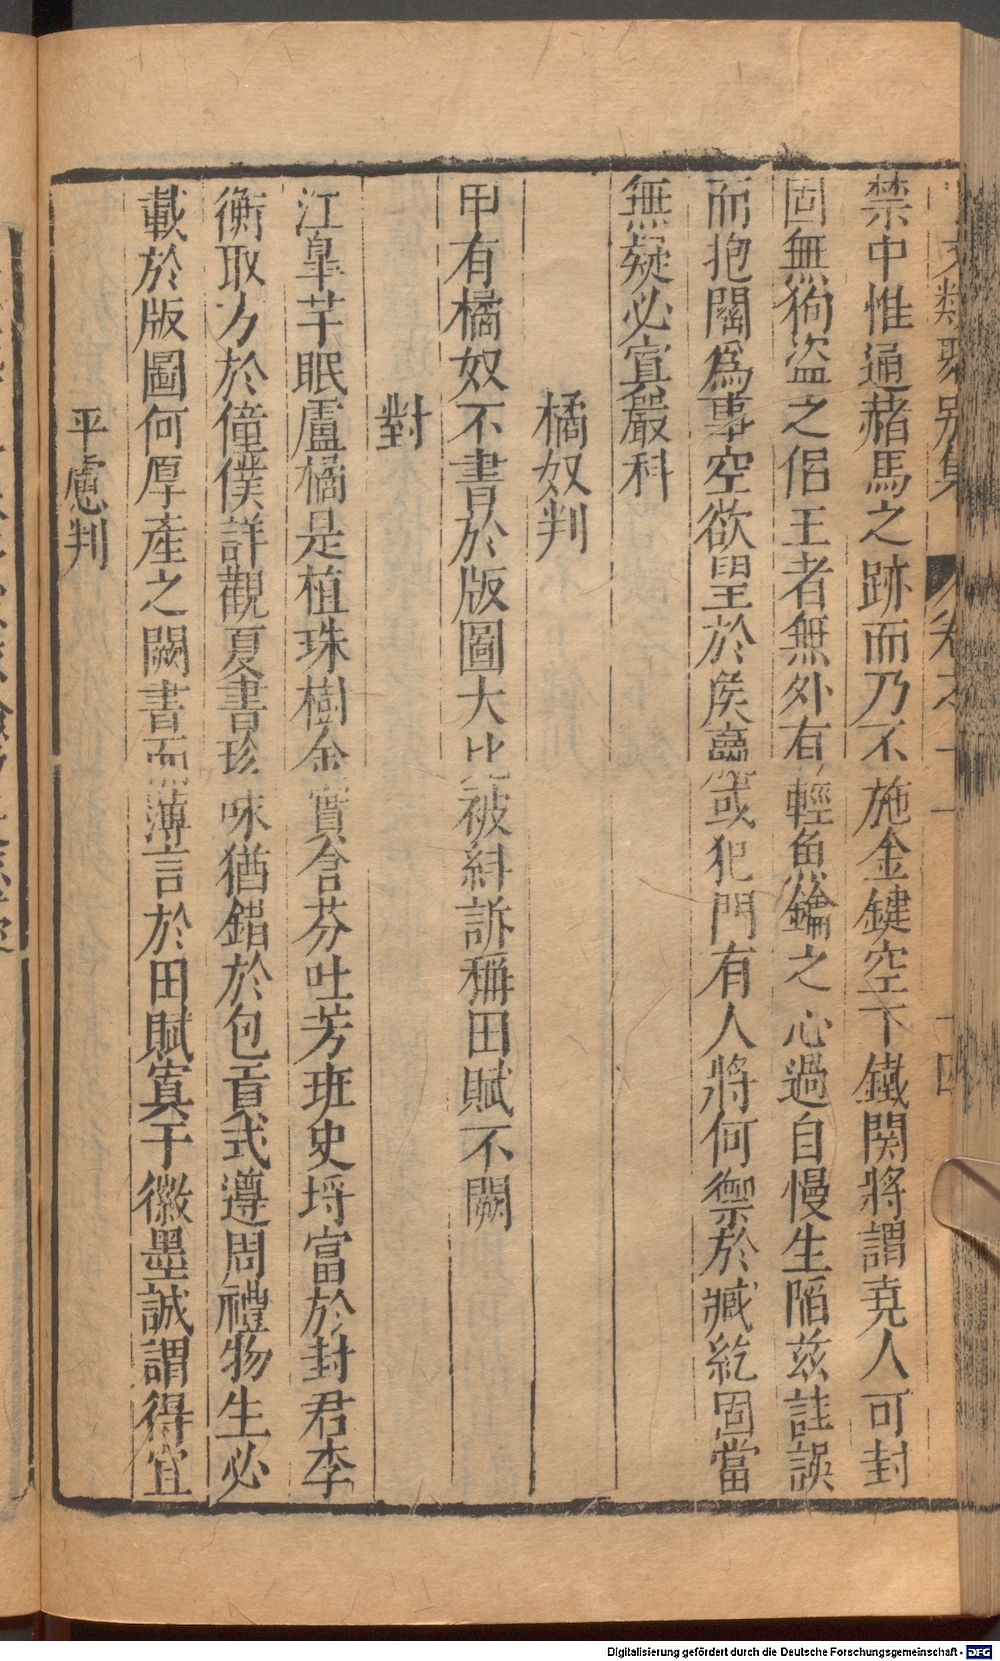 禁中惟通赭馬之跡而乃不施金鍵空下鐵関將謂堯人可封
固無狗盜之侣王者無外有輕魚鑰之心過自慢生陷兹詿誤
而抱關為事空欲望於侯嬴或犯門有人將何禦於臧紇固當
無疑必寘嚴科
橘奴判
甲有橘奴不書於版圖大比被糾訴稱田賦不闕
對
江臯芊眠盧橘是植珠樹金實含芬吐芳班史埒富於封君李
衡取方於僮僕詳觀夏書珍味猶錯於包貢式遵周禮物生必
載於版圖何厚産之闕書而薄言於田賦寘于徽墨誠謂得宜
平慮判
Digitalisierung gefördert durch die Deutsche Forschungsgemeinschaft - DFG